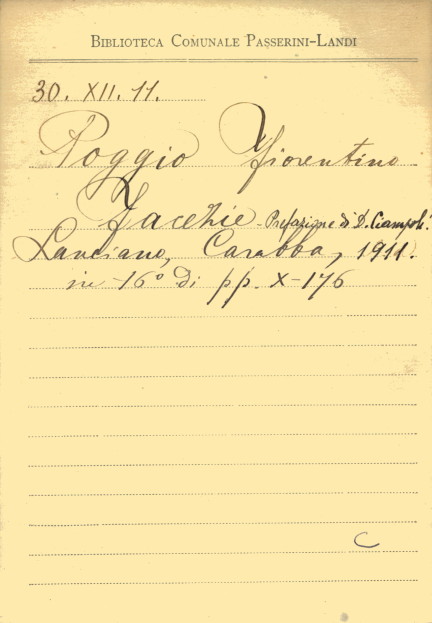 BIBLIOTECA COMUNALE PASSERINI-LANDI
30. XII. 11.
Poggio Fiorentino
Facezie - Prefazione di D. Ciampoli.
Lanciano, Carabba, 1911.
in-16° di pp. X-176
C